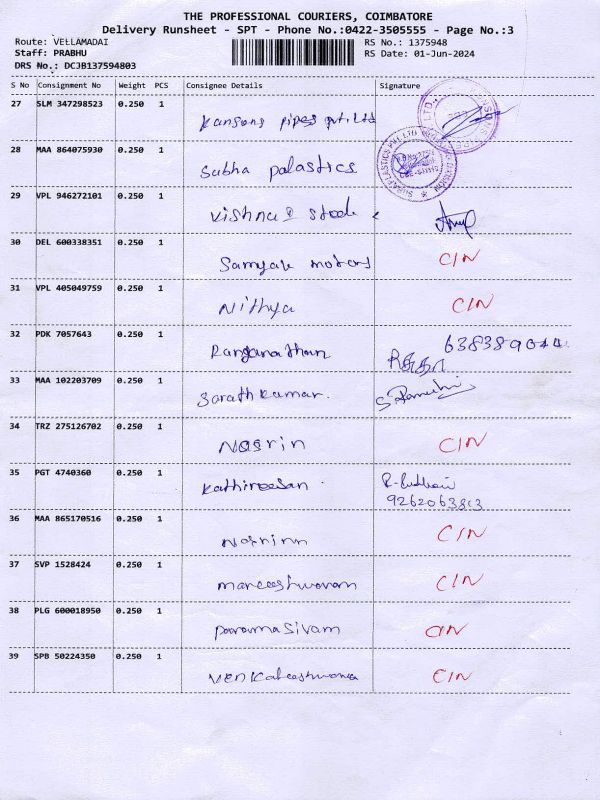 THE PROFESSIONAL COURIERS, COIMBATORE
Delivery Runsheet - SPT - Phone No.:0422-3505555 - Page No.:3
Route: VELLAMADAI RS No.: 1375948
Staff: PRABHU RS Date: 01-Jun-2024
DRS No.: DCJB137594803
S No Consignment No Weight PCS Consignee Details Signature
27 SLM 347298523 0.250 1 Kansons pipes pvt.Ltd
28 MAA 864075930 0.250 1 Subha palastics
29 VPL 946272101 0.250 1 Vishnu
30 DEL 600338351 0.250 1 Samyak motors CIN
31 VPL 405049759 0.250 1 Nithya CIN
32 PDK 7057643 0.250 1 Ranganathan
33 MAA 102203709 0.250 1 Sarathkumar.
34 TRZ 275126702 0.250 1 Nasrin CIN
35 PGT 4740360 0.250 1 Kathireesan
9262063813
36 MAA 865170516 0.250 1 CIN
37 SVP 1528424 0.250 1 CIN
38 PLG 600018950 0.250 1 Paramasivam CIN
39 SPB 50224350 0.250 1 CIN